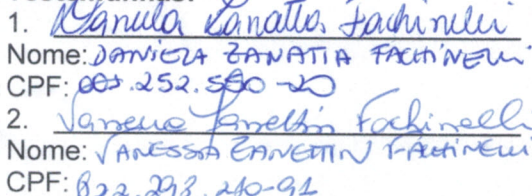 1. Daniela Zanatta Fachinelli
Nome: DANIELA ZANATTA FACHINELLI
CPF: 005.252.550-20
2. Vanessa Zanettin Fachinelli
Nome: VANESSA ZANETTIN FACHINELLI
CPF: 822.293.210-91